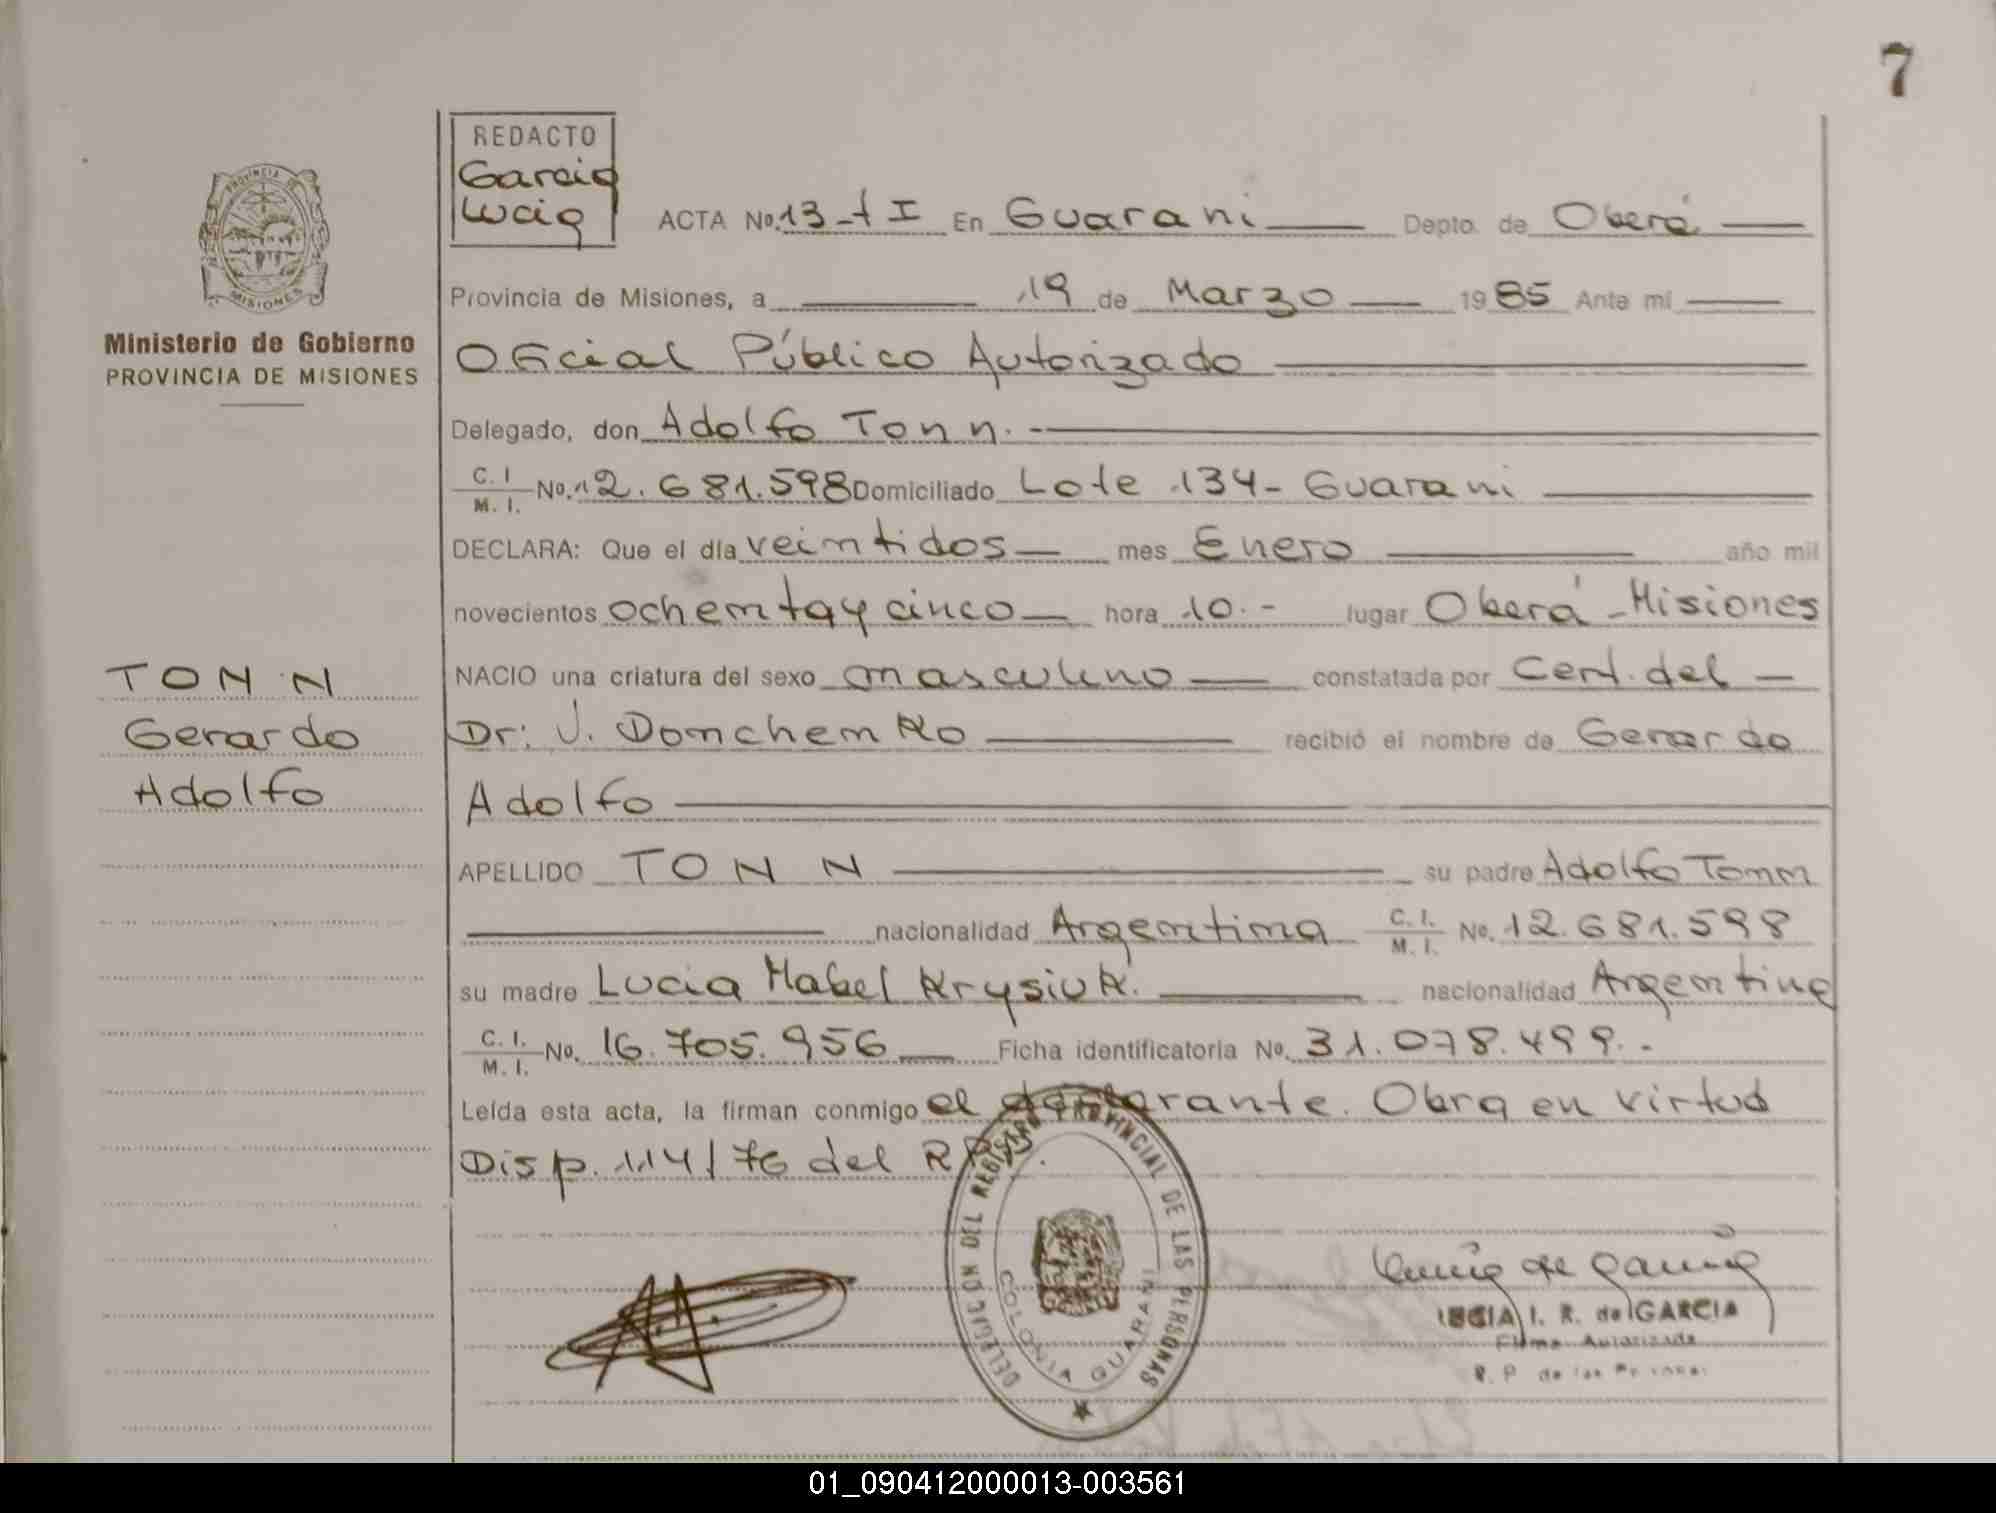 7
REDACTO
Garcia
Lucia
ACTA No. 13-t I En Guarani Depto. de Oberá
Provincia de Misiones, a 19 de Marzo 1985 Ante mi
Oficial Público Autorizado
Delegado, don Adolfo Tonn.
C. I. / M. I. No. 12.681.598 Domiciliado Lote 134- Guarani
DECLARA: Que el día veintidos mes Enero año mil
novecientos ochentay cinco hora 10.- lugar Oberá-Misiones
NACIO una criatura del sexo masculino constatada por Cert. del
Dr: J. Donchenko recibió el nombre de Gerardo
Adolfo
APELLIDO TONN su padre Adolfo Tonn
nacionalidad Argentina C. I. / M. I. No. 12.681.598
su madre Lucia Mabel Krysiuk. nacionalidad Argentina
C. I. / M. I. No. 16.705.956 Ficha identificatoria No. 31.078.499.-
Leída esta acta, la firman conmigo el declarante. Obra en virtud
Disp. 114/76 del
PROVINCIA DE MISIONES
Ministerio de Gobierno
PROVINCIA DE MISIONES
TONN
Gerardo
Adolfo
DELEGACION DEL REGISTRO PROVINCIAL DE LAS PERSONAS
COLONIA GUARANI
Lucia de Garcia
LUCIA I. R. de GARCIA
Firma Autorizada
R. P. de las Personas
01_090412000013-003561